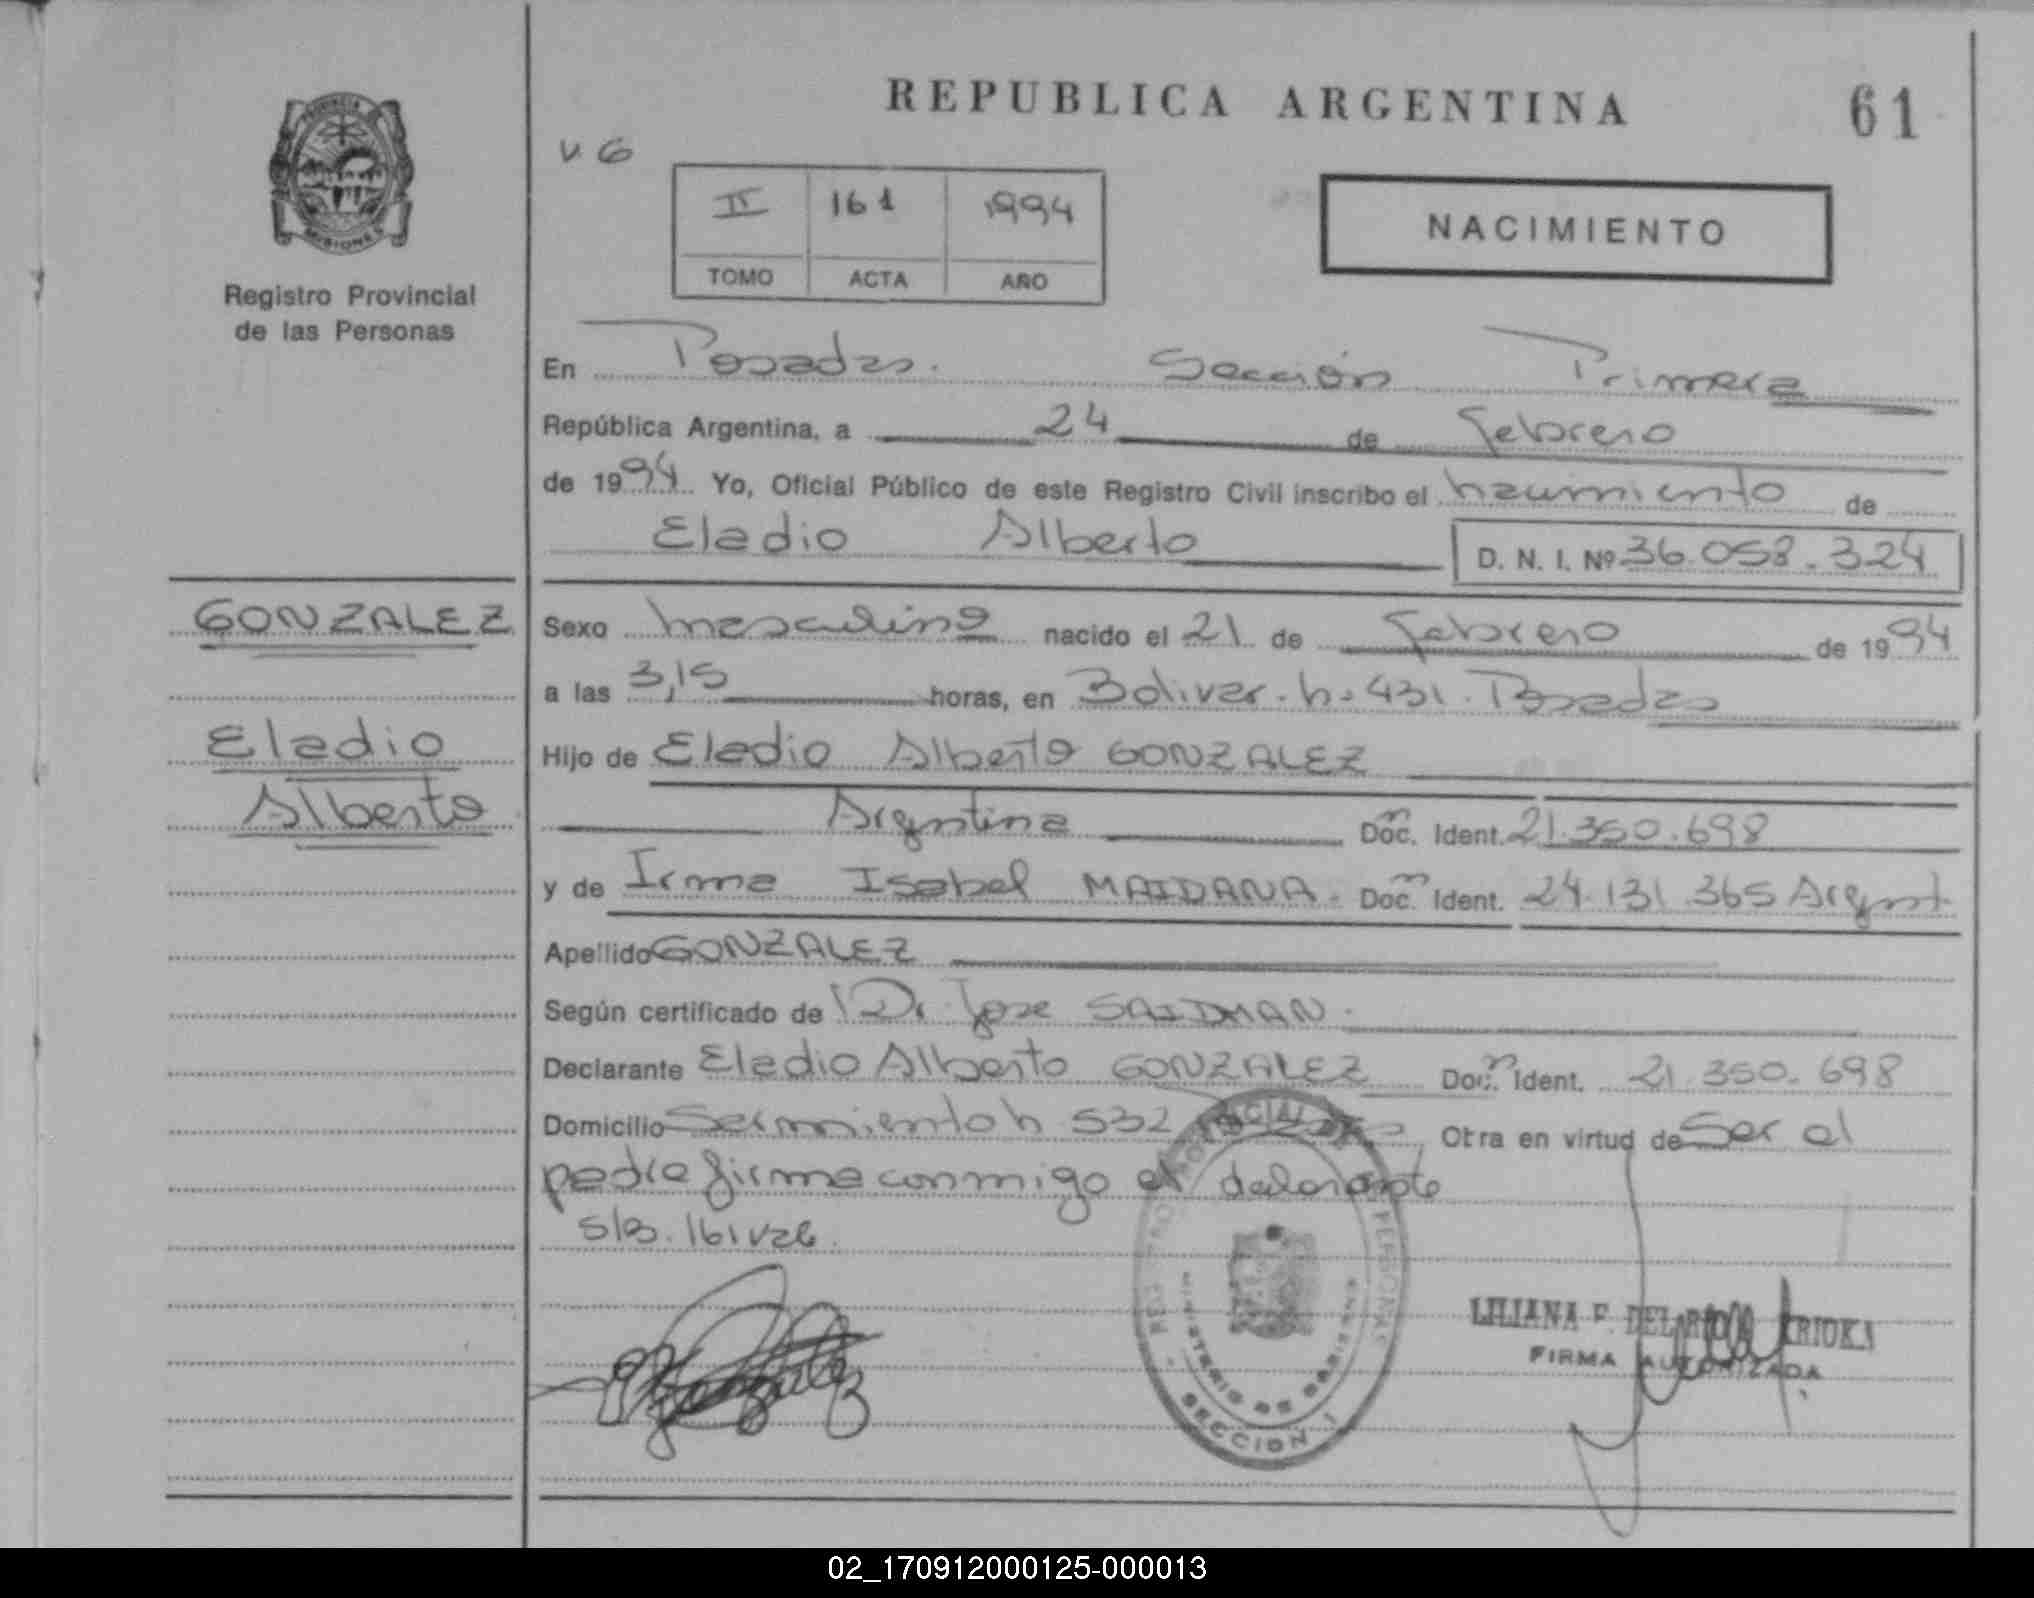 REPUBLICA ARGENTINA
61
PROVINCIA
MISIONES
Registro Provincial
de las Personas
V. 6
II 161 1994
TOMO ACTA AÑO
NACIMIENTO
En Posadas. Sección Primera
República Argentina, a 24 de Febrero
de 1994 Yo, Oficial Público de este Registro Civil inscribo el nacimiento de
Eladio Alberto D. N. I. Nº 36.058.324
GONZALEZ
Eladio
Alberto
Sexo masculino nacido el 21 de Febrero de 1994
a las 3,15 horas, en Bolivar. n. 431. Posadas
Hijo de Eladio Alberto GONZALEZ
Argentina Doc. Ident. 21.350.698
y de Irma Isabel MAIDANA. Doc. Ident. 24.131.365 Argent.
Apellido GONZALEZ
Según certificado de Dr Jose SAIDMAN.
Declarante Eladio Alberto GONZALEZ Doc. Ident. 21.350.698
Domicilio Sarmiento n 532 Otra en virtud de Ser el
padre firma conmigo el declarante
S/B. 161 vale.
SECCION 1
LILIANA F.
FIRMA AUTORIZADA
02_170912000125-000013